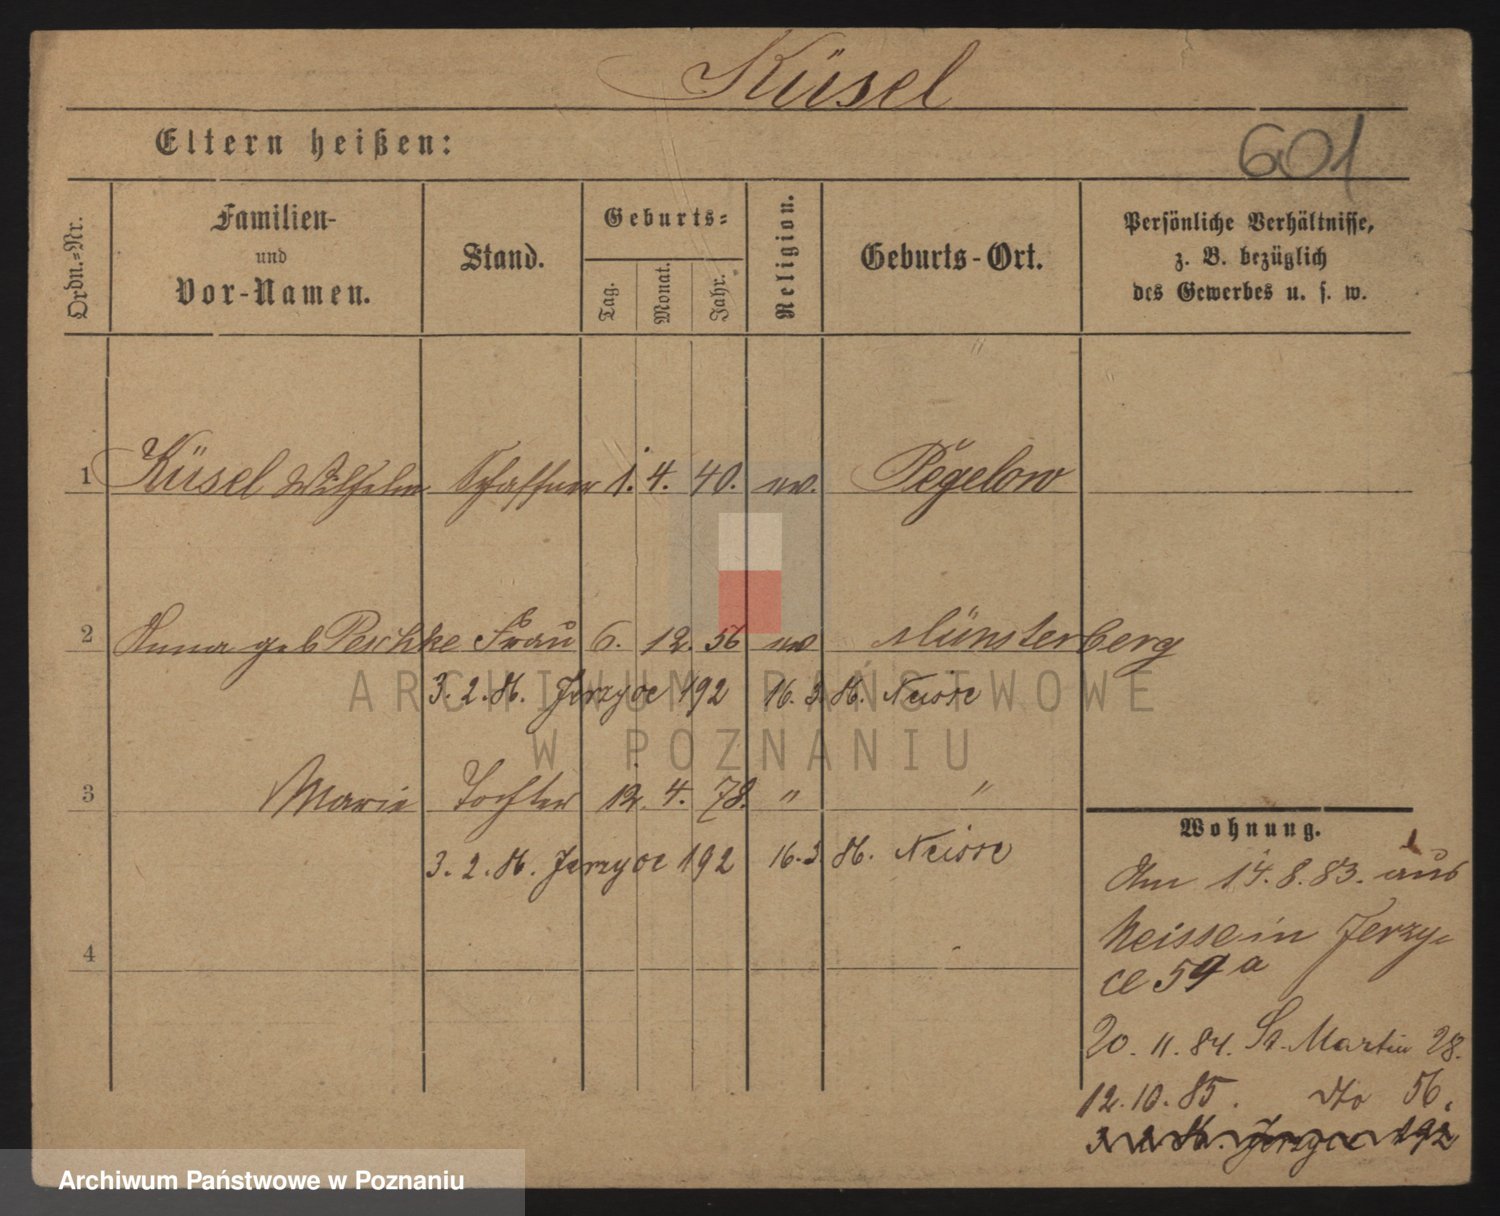 Küsel
Eltern heißen:
601
Ordn.-Nr.
Familien-
und
Vor-Namen.
Stand.
Geburts-
Tag.
Monat.
Jahr.
Religion.
Geburts-Ort.
Persönliche Verhältnisse,
z. B. bezüglich
des Gewerbes u. s. w.
1 Küsel Wilhelm Schaffner 1. 4. 40. ev. Pegelow
2 Anna geb Peschke Frau 6. 12. 56 ev Münsterberg
3. 2. 86. Jerzyce 192 16. 3. 86. Neisse
3 Marie Tochter 12. 4. 78. " "
3. 2. 86. Jerzyce 192 16. 3. 86. Neisse
4
Wohnung.
Am 14. 8. 83. aus
Neisse in Jerzy-
ce 59 a
20. 11. 84. St. Martin 28.
12. 10. 85. dto 56.
3. 2. 86. Jerzyce 192
ARCHIWUM PAŃSTWOWE
W POZNANIU
Archiwum Państwowe w Poznaniu